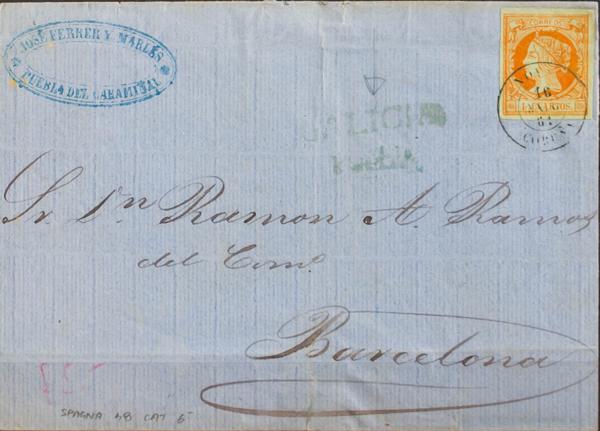 JOSÉ FERRER Y MARLÉS
PUEBLA DEL CARAMIÑAL
CORREOS
4 CUARTOS.
16
61
CORUÑA
GALICIA
PUEBLA
Sr. Dn Ramon A. Ramos
del Comº
Barcelona
SPAGNA 48 CAT 5